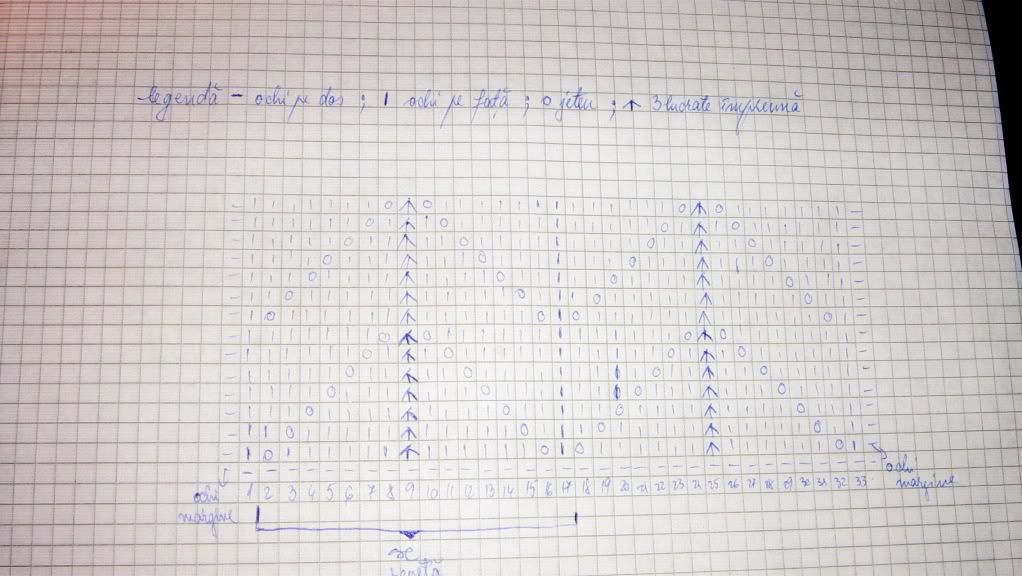 legendă - ochi pe dos ; ı ochi pe față ; o jeteu ; ↑ 3 lucrate împreună
1 2 3 4 5 6 7 8 9 10 11 12 13 14 15 16 17 18 19 20 21 22 23 24 25 26 27 28 29 30 31 32 33
ochi
margine
ochi
margine
se
repetă